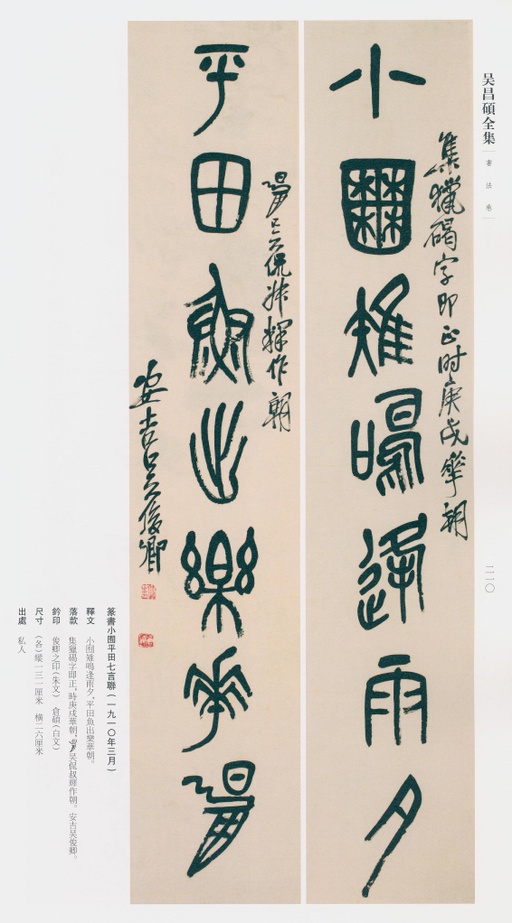 吴昌碩全集
書法卷
二一〇
小囿雉鳴逢雨夕
集獵碣字即正時庚戌華朝
平田魚出樂華朝
吴侃叔釋作朝
安吉吴俊卿
篆書小囿平田七言聯(一九一〇年三月)
釋文 小囿雉鳴逢雨夕,平田魚出樂華朝。
落款 集獵碣字即正,時庚戌華朝,吴侃叔釋作朝。安吉吴俊卿。
鈐印 俊卿之印(朱文) 倉碩(白文)
尺寸 (各)縱一三一厘米 橫二六厘米
出處 私人